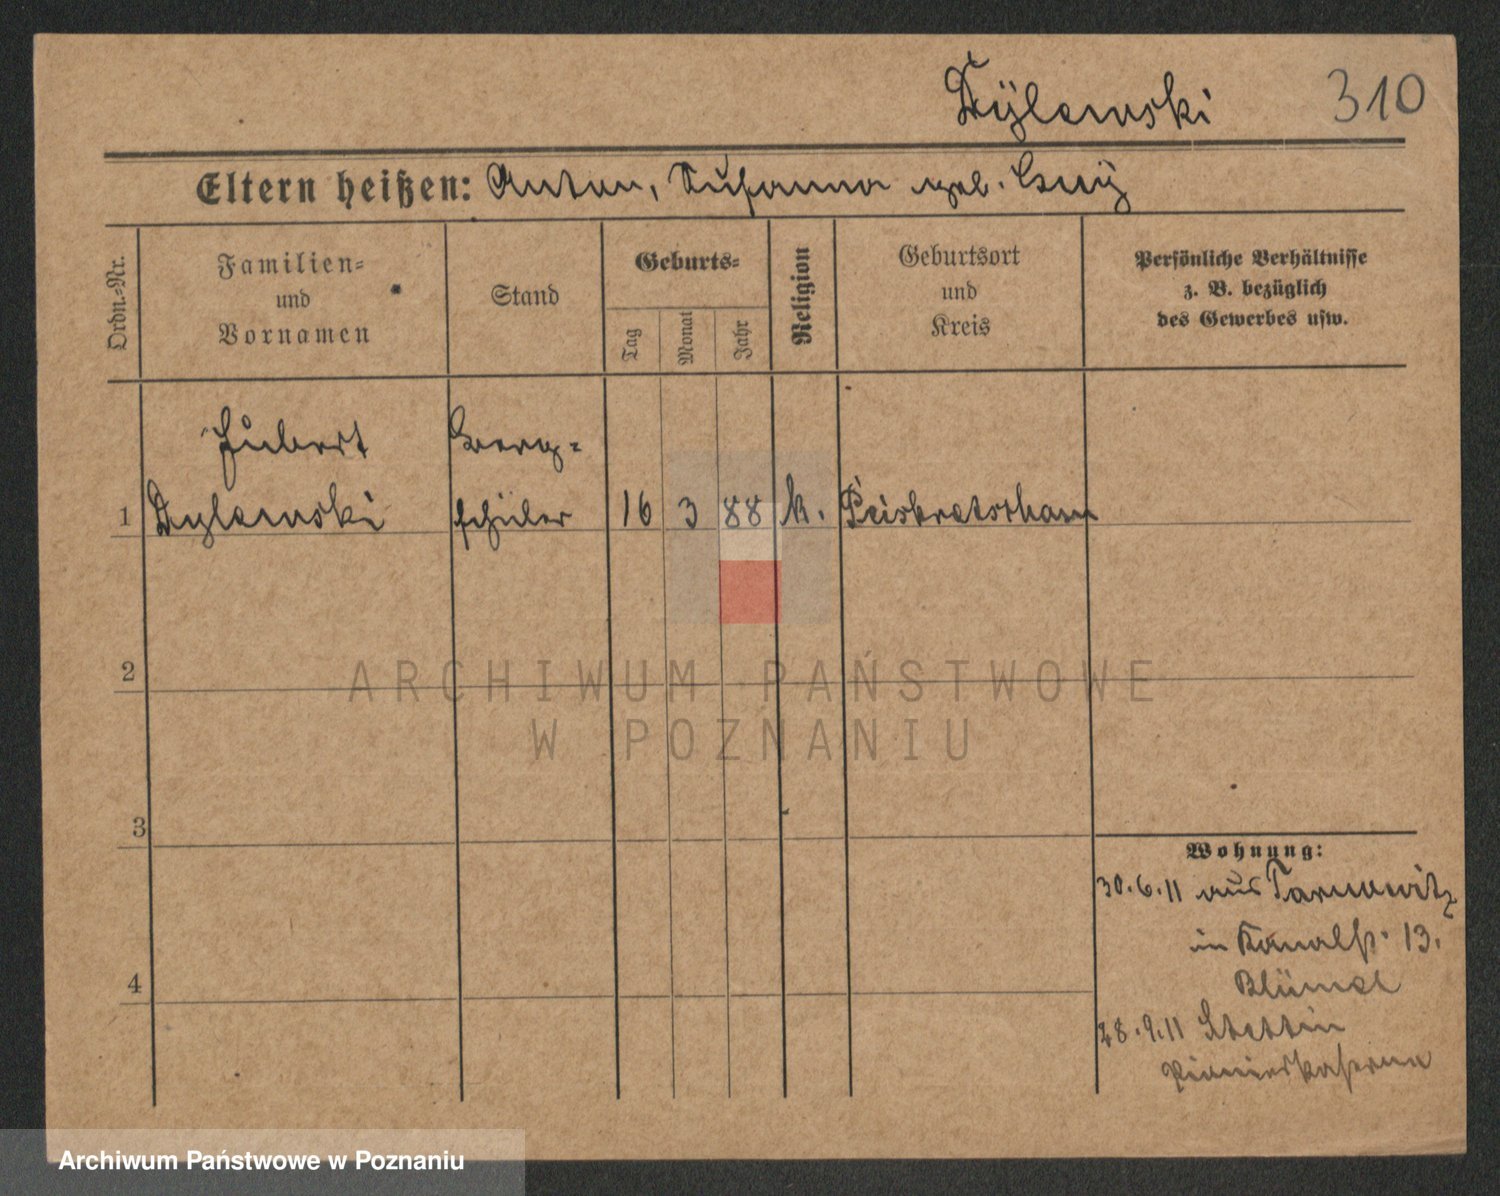 Dÿlewski 310
Eltern heißen: Anton, Susanna geb.
Ordn.-Nr.
Familien-
und
Vornamen
Stand
Geburts-
Tag
Monat
Jahr
Religion
Geburtsort
und
Kreis
Persönliche Verhältnisse
z. B. bezüglich
des Gewerbes usw.
Hubert Berg-
1 Dylewski schüler 16 3 88 k. Peiskretscham
2
3
4
Wohnung:
30.6.11 aus Tarnowitz
in Kanalst. 13.
Blümel
28.9.11 Stettin
Pionierkaserne
ARCHIWUM PAŃSTWOWE
W POZNANIU
Archiwum Państwowe w Poznaniu